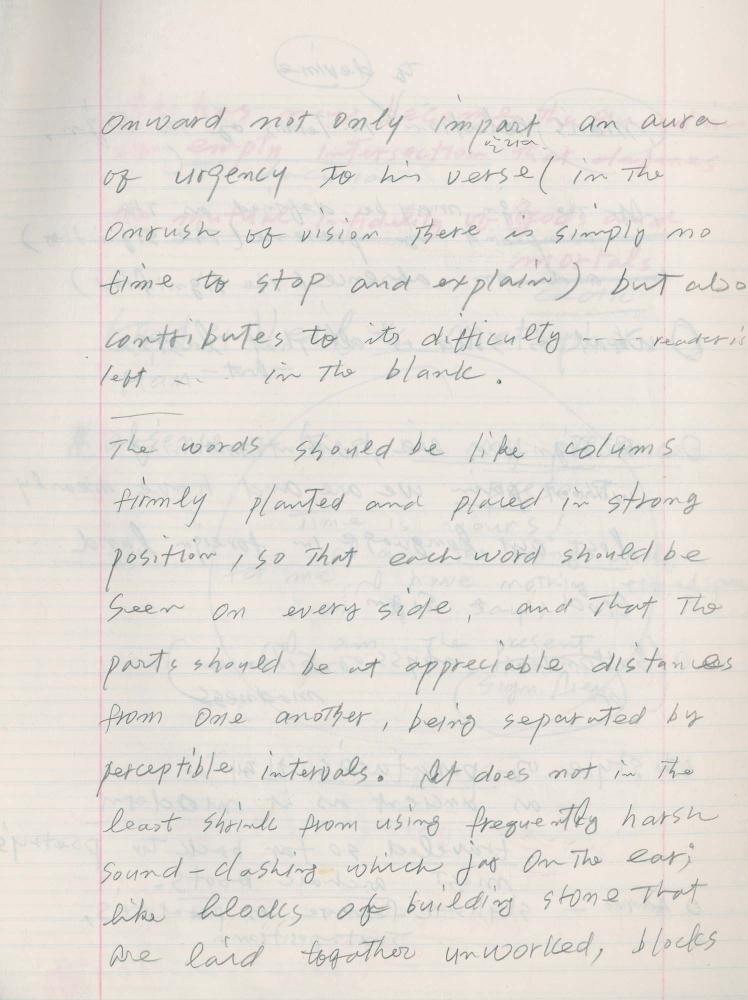 Onward not only impart an aura
of urgency to his verse (in the
Onrush of vision there is simply no
time to stop and explain) but also
contributes to its difficulty --- - reader is
left -- in the blank.
The words should be like colums
firmly planted and placed in strong
position, so that each word should be
seen on every side, and that the
parts should be at appreciable distances
from one another, being separated by
perceptible intervals. It does not in the
least shrink from using frequently harsh
sound-clashing which jar on the ear;
like blocks of building stone that
are laid together unworked, blocks